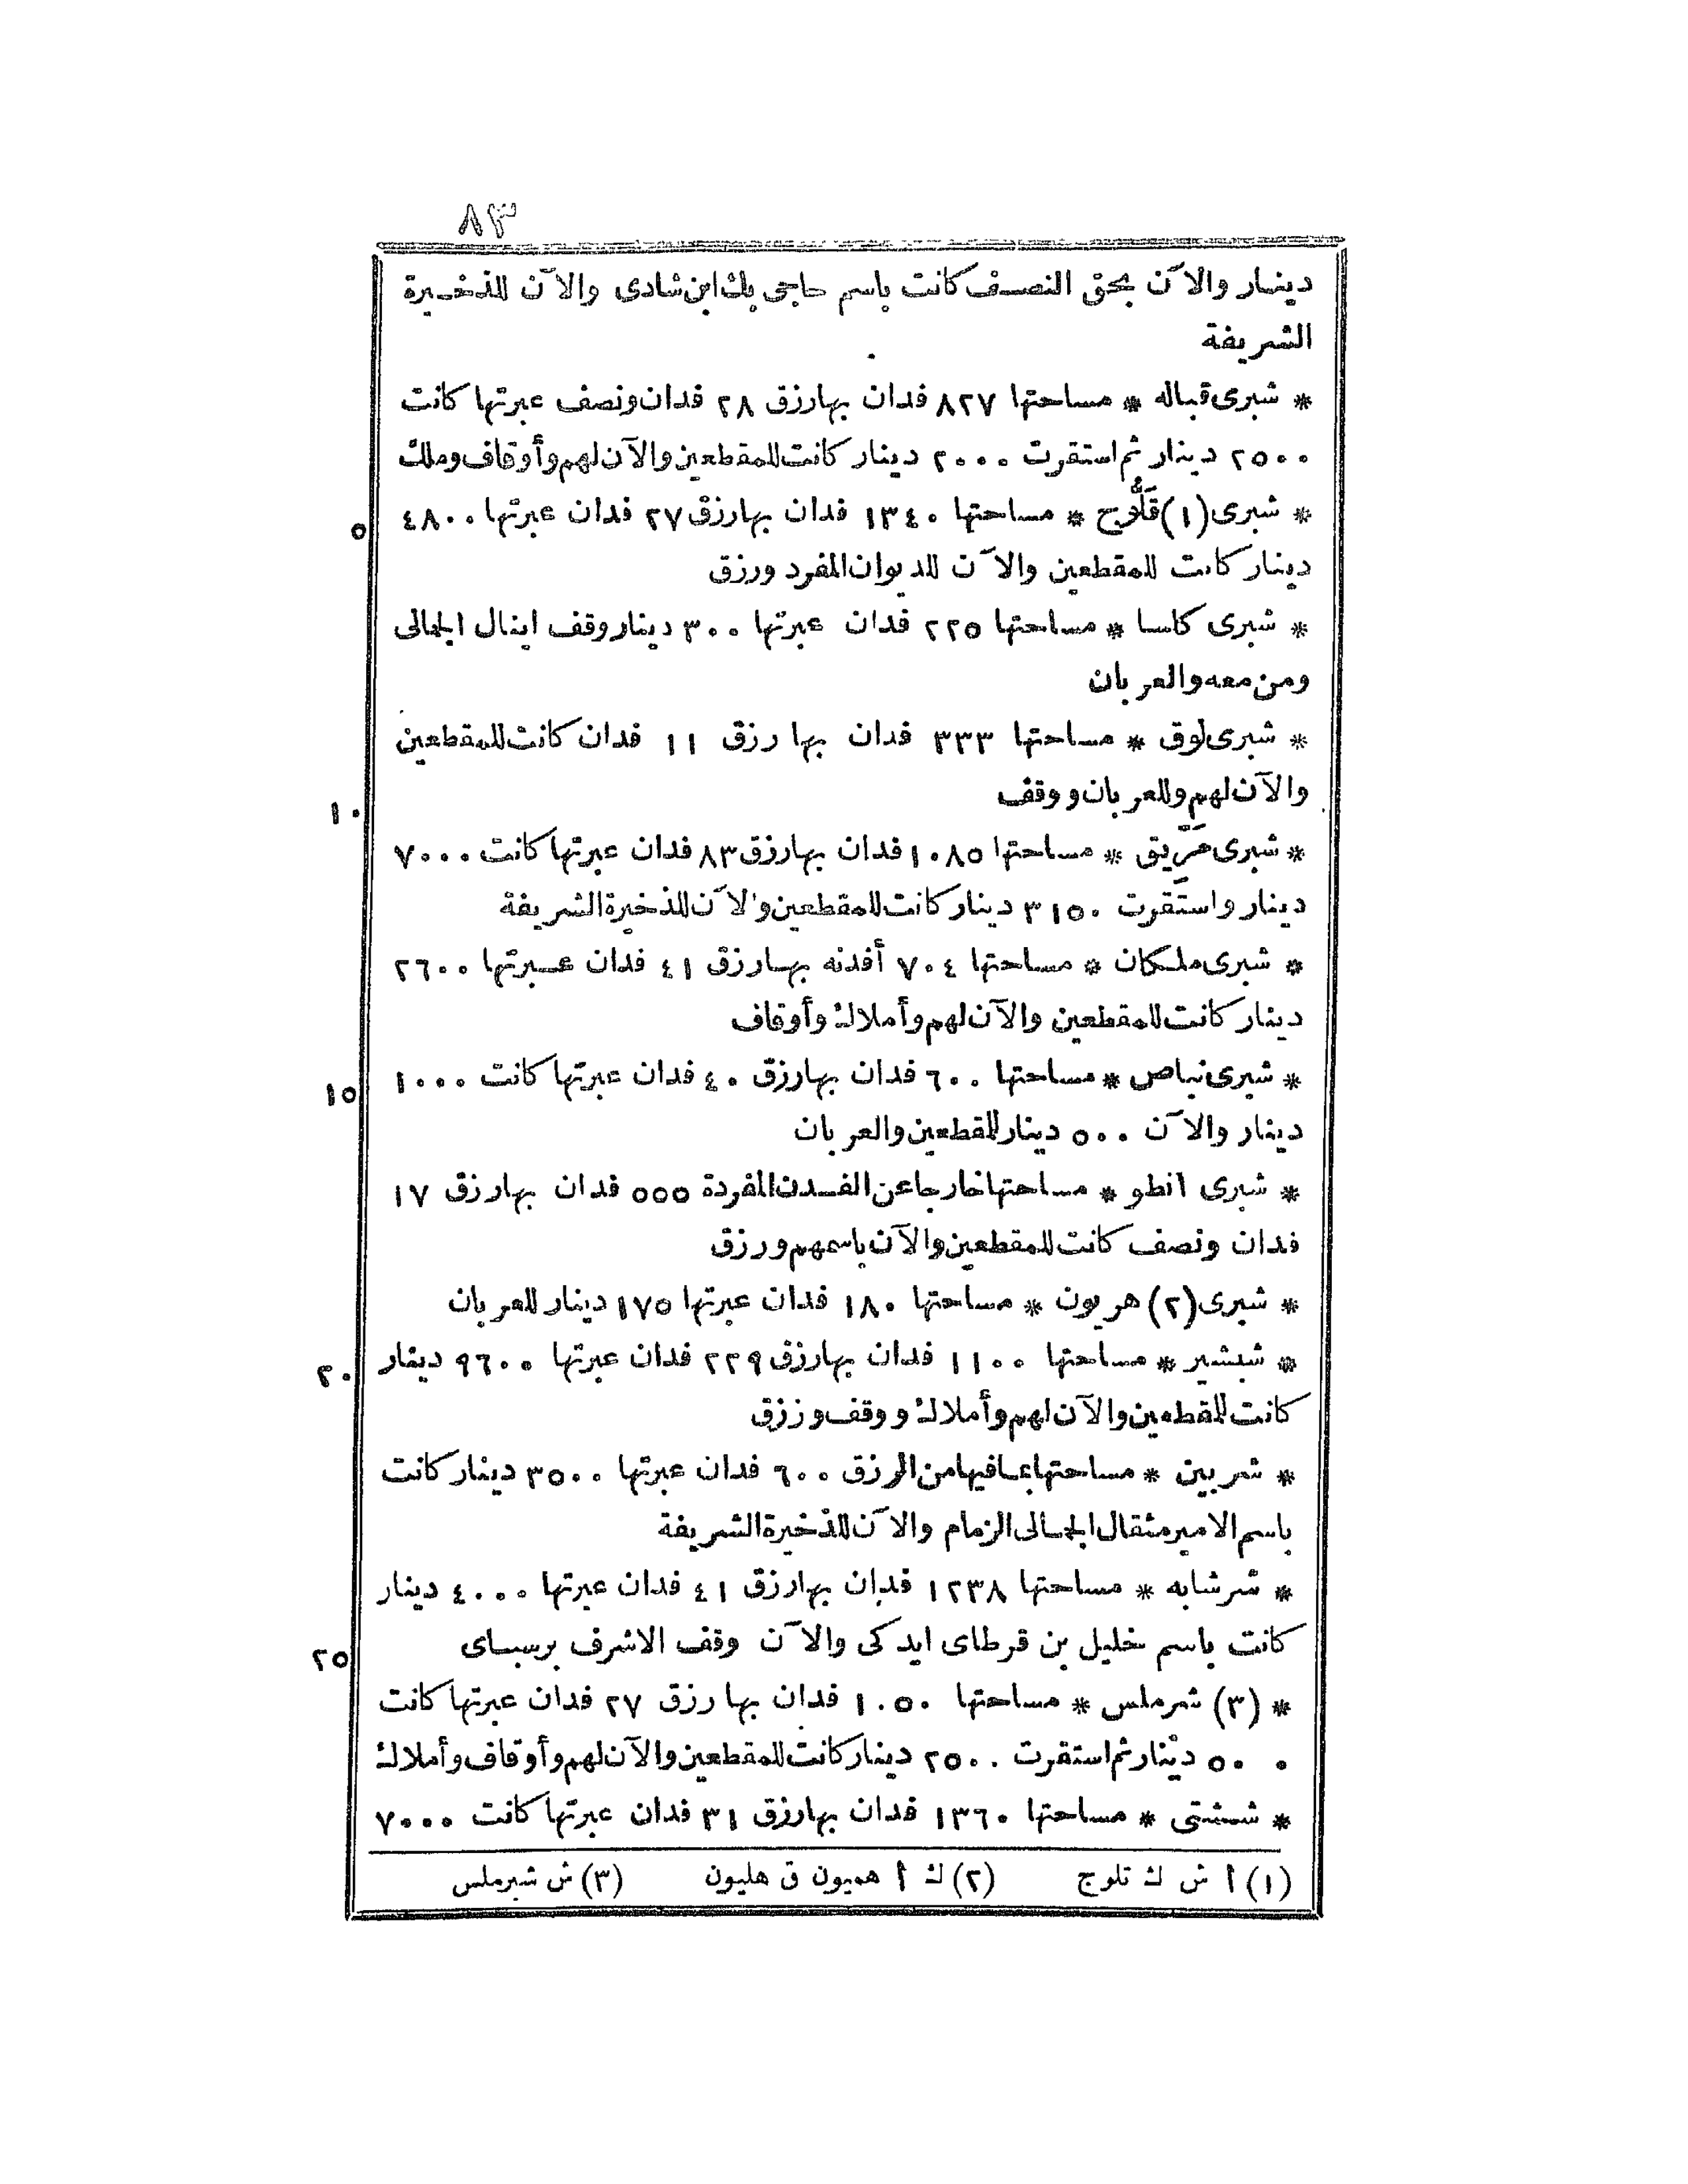 ٨٣
دينار والآن بحق النصف كانت باسم حاجى بك ابن شادى والآن للذخيرة
الشريفة
* شبرى قباله * مساحتها ٨٢٧ فدان بها رزق ٢٨ فدان ونصف عبرتها كانت
٢٥٠٠ دينار ثم استقرت ٢٠٠٠ دينار كانت للمقطعين والآن لهم وأوقاف وملك
* شبرى (١) قلّوج * مساحتها ١٣٤٠ فدان بها رزق ٢٧ فدان عبرتها ٤٨٠٠
٥
دينار كانت للمقطعين والآن للديوان المفرد ورزق
* شبرى كاسا * مساحتها ٢٢٥ فدان عبرتها ٣٠٠ دينار وقف اينال الجمالى
ومن معه والعربان
* شبرى لوق * مساحتها ٣٣٣ فدان بها رزق ١١ فدان كانت للمقطعين
والآن لهم وللعربان ووقف
١٠
* شبرى مَرّيق * مساحتها ١٠٨٥ فدان بها رزق ٨٣ فدان عبرتها كانت ٧٠٠٠
دينار واستقرت ٣١٥٠ دينار كانت للمقطعين والآن للذخيرة الشريفة
* شبرى ملكان * مساحتها ٧٠٤ أفدنه بها رزق ٤١ فدان عبرتها ٢٦٠٠
دينار كانت للمقطعين والآن لهم وأملاك وأوقاف
* شبرى نباص * مساحتها ٦٠٠ فدان بها رزق ٤٠ فدان عبرتها كانت ١٠٠٠
١٥
دينار والآن ٥٠٠ دينار للمقطعين والعربان
* شبرى انطو * مساحتها خارجا عن الفدن المفردة ٥٥٥ فدان بها رزق ١٧
فدان ونصف كانت للمقطعين والآن باسمهم ورزق
* شبرى (٢) هريون * مساحتها ١٨٠ فدان عبرتها ١٧٥ دينار للعربان
* شبشير * مساحتها ١١٠٠ فدان بها رزق ٢٢٩ فدان عبرتها ٩٦٠٠ دينار
٢٠
كانت للمقطعين والآن لهم وأملاك ووقف ورزق
* شربين * مساحتها بما فيها من الرزق ٦٠٠ فدان عبرتها ٣٥٠٠ دينار كانت
باسم الامير مثقال الجمالى الزمام والآن للذخيرة الشريفة
* شرشابه * مساحتها ١٢٣٨ فدان بها رزق ٤١ فدان عبرتها ٤٠٠٠ دينار
كانت باسم خليل بن قرطاى ايدكى والآن وقف الاشرف برسباى
٢٥
* (٣) شرملس * مساحتها ١٠٥٠ فدان بها رزق ٢٧ فدان عبرتها كانت
٥٠٠٠ دينار ثم استقرت ٢٥٠٠ دينار كانت للمقطعين والآن لهم وأوقاف وأملاك
* ششتى * مساحتها ١٣٦٠ فدان بها رزق ٣١ فدان عبرتها كانت ٧٠٠٠
(١) أ ش ك تلوج (٢) ك أ هميون ق هليون (٣) ش شبرملس